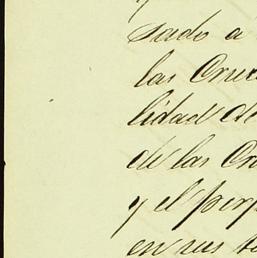 sado à
las Cruc
lidad de
de las Cr
y el perp
en sus t